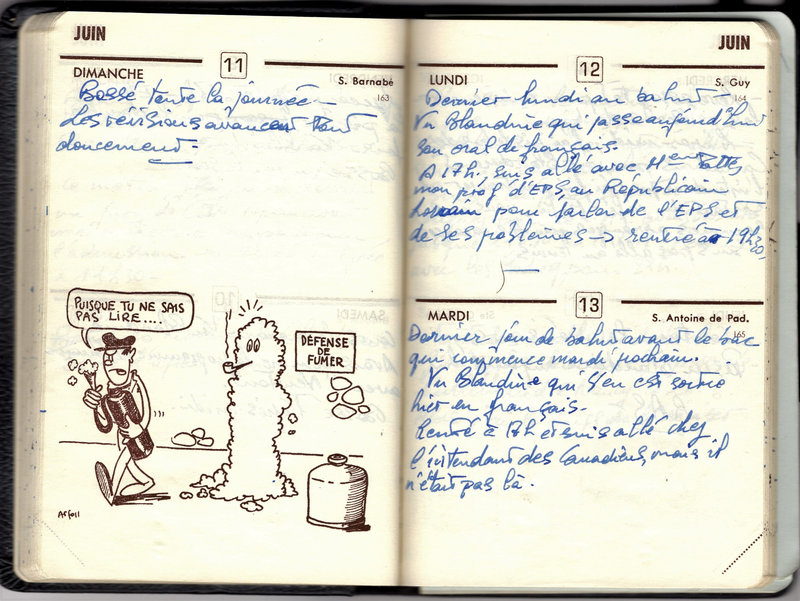 JUIN
DIMANCHE
11
S. Barnabé
163
Bossé toute la journée -
Les révisions avancent tout
doucement.
PUISQUE TU NE SAIS
PAS LIRE....
DÉFENSE
DE
FUMER
JUIN
LUNDI
12
S. Guy
164
Dernier lundi au bahut -
Vu Blandine qui passe aujourd'hui
son oral de français.
A 17h, suis allé avec
mon prof d'EPS, au Républicain
Lorrain pour parler de l'EPS et
de ses problèmes → rentré à 19h30.
MARDI
13
S. Antoine de Pad.
165
Dernier jour de bahut avant le bac
qui commence mardi prochain.
Vu Blandine qui s'en est sortie
hier en français.
Rentré à 17h et suis allé chez
l'intendant des Canadiens, mais il
n'était pas là.